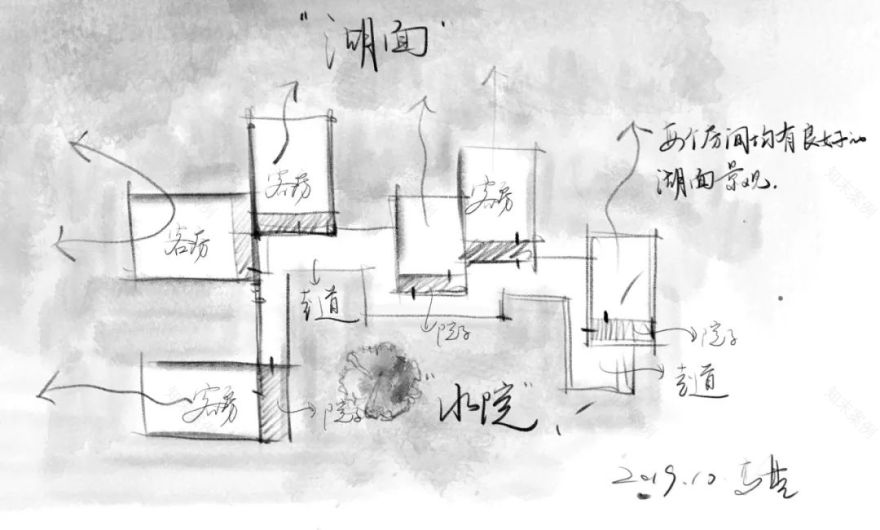 "湖面"
每个房间均有良好的
湖面景观.
客房
客房
客房
走道
院子
院子
走道
客房
院子
"水院"
2019.10
知末案例
知末案例